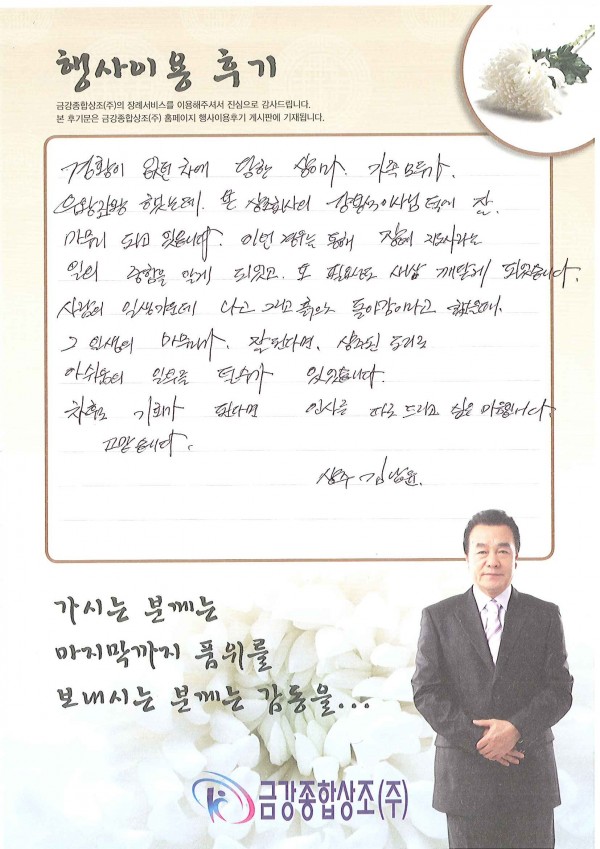 행사이용 후기
금강종합상조(주)의 장례서비스를 이용해주셔서 진심으로 감사드립니다.
본 후기문은 금강종합상조(주) 홈페이지 행사이용후기 게시판에 기재됩니다.
경황이 없던 차에 당한 상이라. 가족 모두가.
우왕좌왕 했는데. 본 상조회사의 이사님 덕에 잘.
마무리 되고 있습니다. 이번 경우는 통해 장례 지도사라는
일의 중함을 알게 되었고. 또 필요성도 새삼 깨닫게 되었습니다.
사람의 인생가운데 나고 그리고 흙으로 돌아감이라고 했는데.
그 인생의 마무리가. 잘 된다면. 상주된 도리로
아쉬움의 일부를 덜수가 있겠습니다.
차후로 기회가 된다면 인사를 따로 드리고 싶은 마음입니다.
고맙습니다.
상주 김남윤.
가시는 분께는
마지막까지 품위를
보내시는 분께는 감동을...
금강종합상조(주)